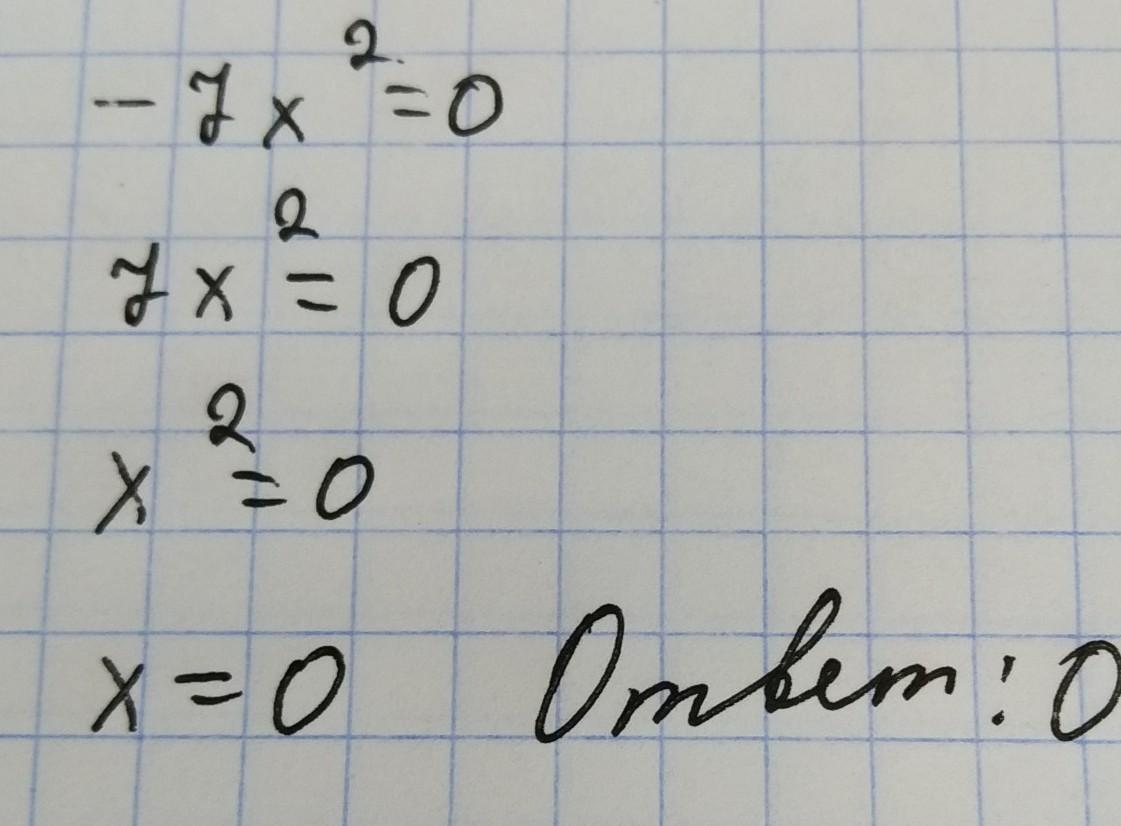 -7x²=0
7x²=0
x²=0
x=0 Ответ: 0